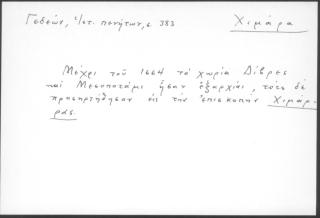 Γεδεών, Πατ. πινήτων, σ. 383
Χιμάρα
Μέχρι τοῦ 1664 τὰ χωρία Δίβρες
καὶ Μεσοποτάμι ἦσαν ἐξαρχίαι, τότε δὲ
προσηρτήθησαν εἰς τὴν ἐπισκοπὴν Χιμάρ-
ρας.